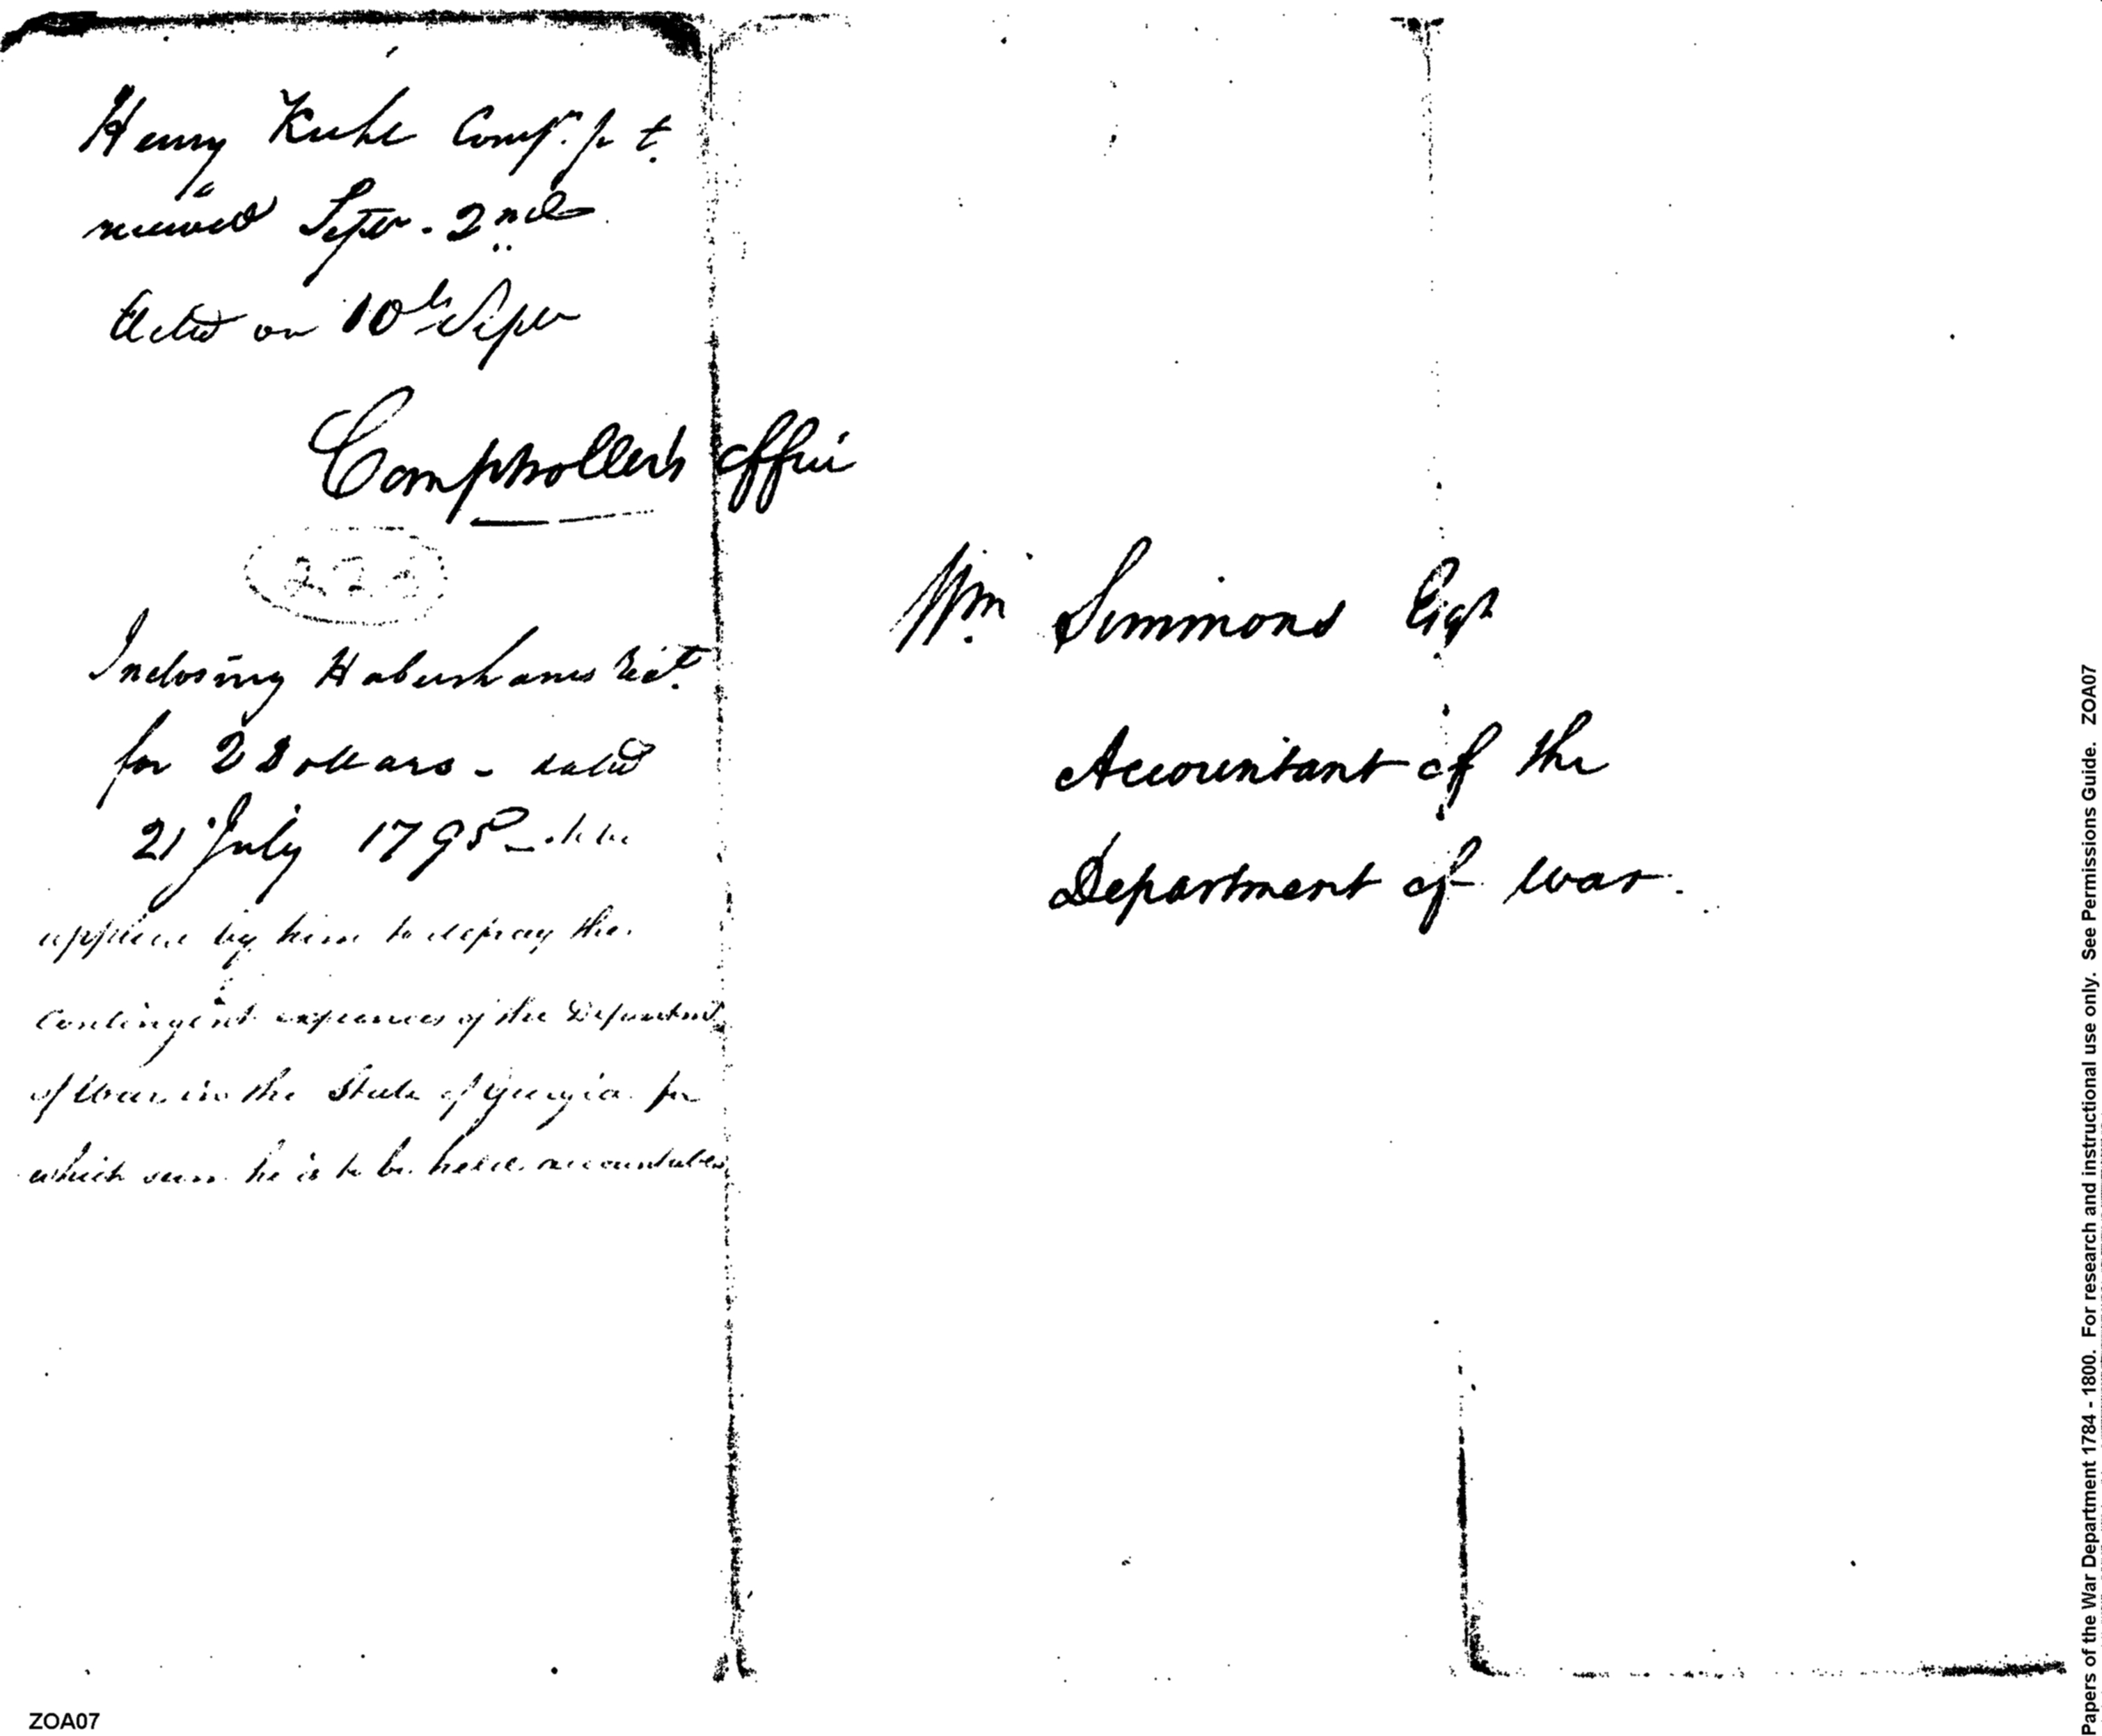 Henry Kuhl Comp. p t.
received Sepr. 2nd
Acted on 10th Sepr
Comptroller's Office
Inclosing Habershams Rect.
for 2 Dollars - dated
21 July 1795 - to be
applied by him to defray the
Contingent expences of the Department
of War in the State of Georgia for
which sum he is to be held accountable
Wm Simmons Esqr
Accountant of the
Department of War.
ZOA07
Papers of the War Department 1784 - 1800. For research and instructional use only. See Permissions Guide. ZOA07